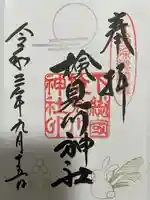 奉拝
検見川神社
下総國
神社印
令和三年九月十五日